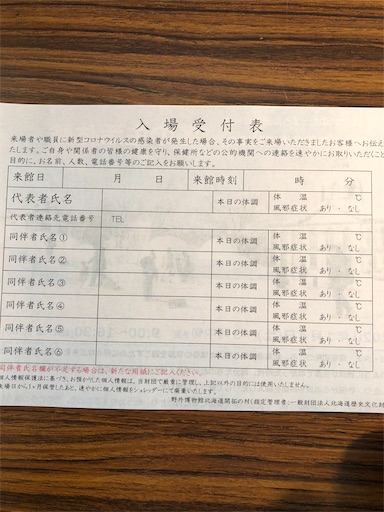 入場受付表
来場者や職員に新型コロナウイルスの感染者が発生した場合、その事実をご来場いただきましたお客様へお伝え
たします。ご自身や関係者の皆様の健康を守り、保健所などの公的機関への連絡を速やかにお取りいただくこと
目的に、お名前、人数、電話番号等のご記入をお願いします。
来館日 月 日 来館時刻 時 分
代表者氏名 本日の体調 体温 ℃
風邪症状 あり・なし
代表者連絡先電話番号 TEL
同伴者氏名① 本日の体調 体温 ℃
風邪症状 あり・なし
同伴者氏名② 本日の体調 体温 ℃
風邪症状 あり・なし
同伴者氏名③ 本日の体調 体温 ℃
風邪症状 あり・なし
同伴者氏名④ 本日の体調 体温 ℃
風邪症状 あり・なし
同伴者氏名⑤ 本日の体調 体温 ℃
風邪症状 あり・なし
同伴者氏名⑥ 本日の体調 体温 ℃
風邪症状 あり・なし
同伴者氏名欄が不足する場合は、新たな用紙にご記入ください。
個人情報保護法に基づき、お預かりした個人情報は、当財団で厳重に管理し、上記以外の目的には使用いたしません。
来場日から1ヶ月保管したあと、速やかに個人情報をシュレッダーにて廃棄いたします。
野外博物館北海道開拓の村(指定管理者:一般財団法人北海道歴史文化財